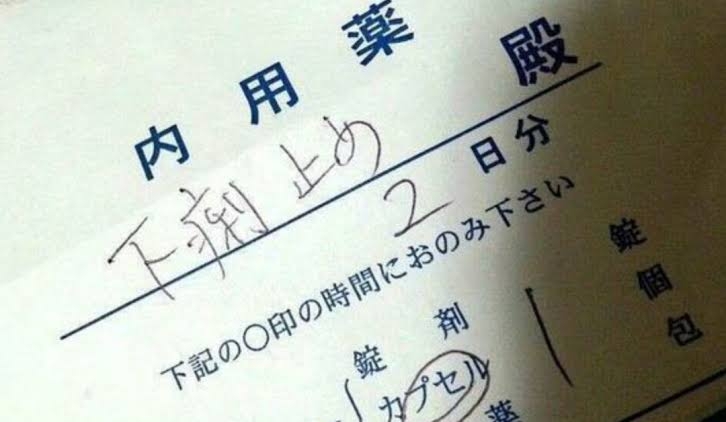 内用薬
下痢止め 殿
2 日分
下記の〇印の時間におのみ下さい
錠剤 錠
カプセル 個
薬 包